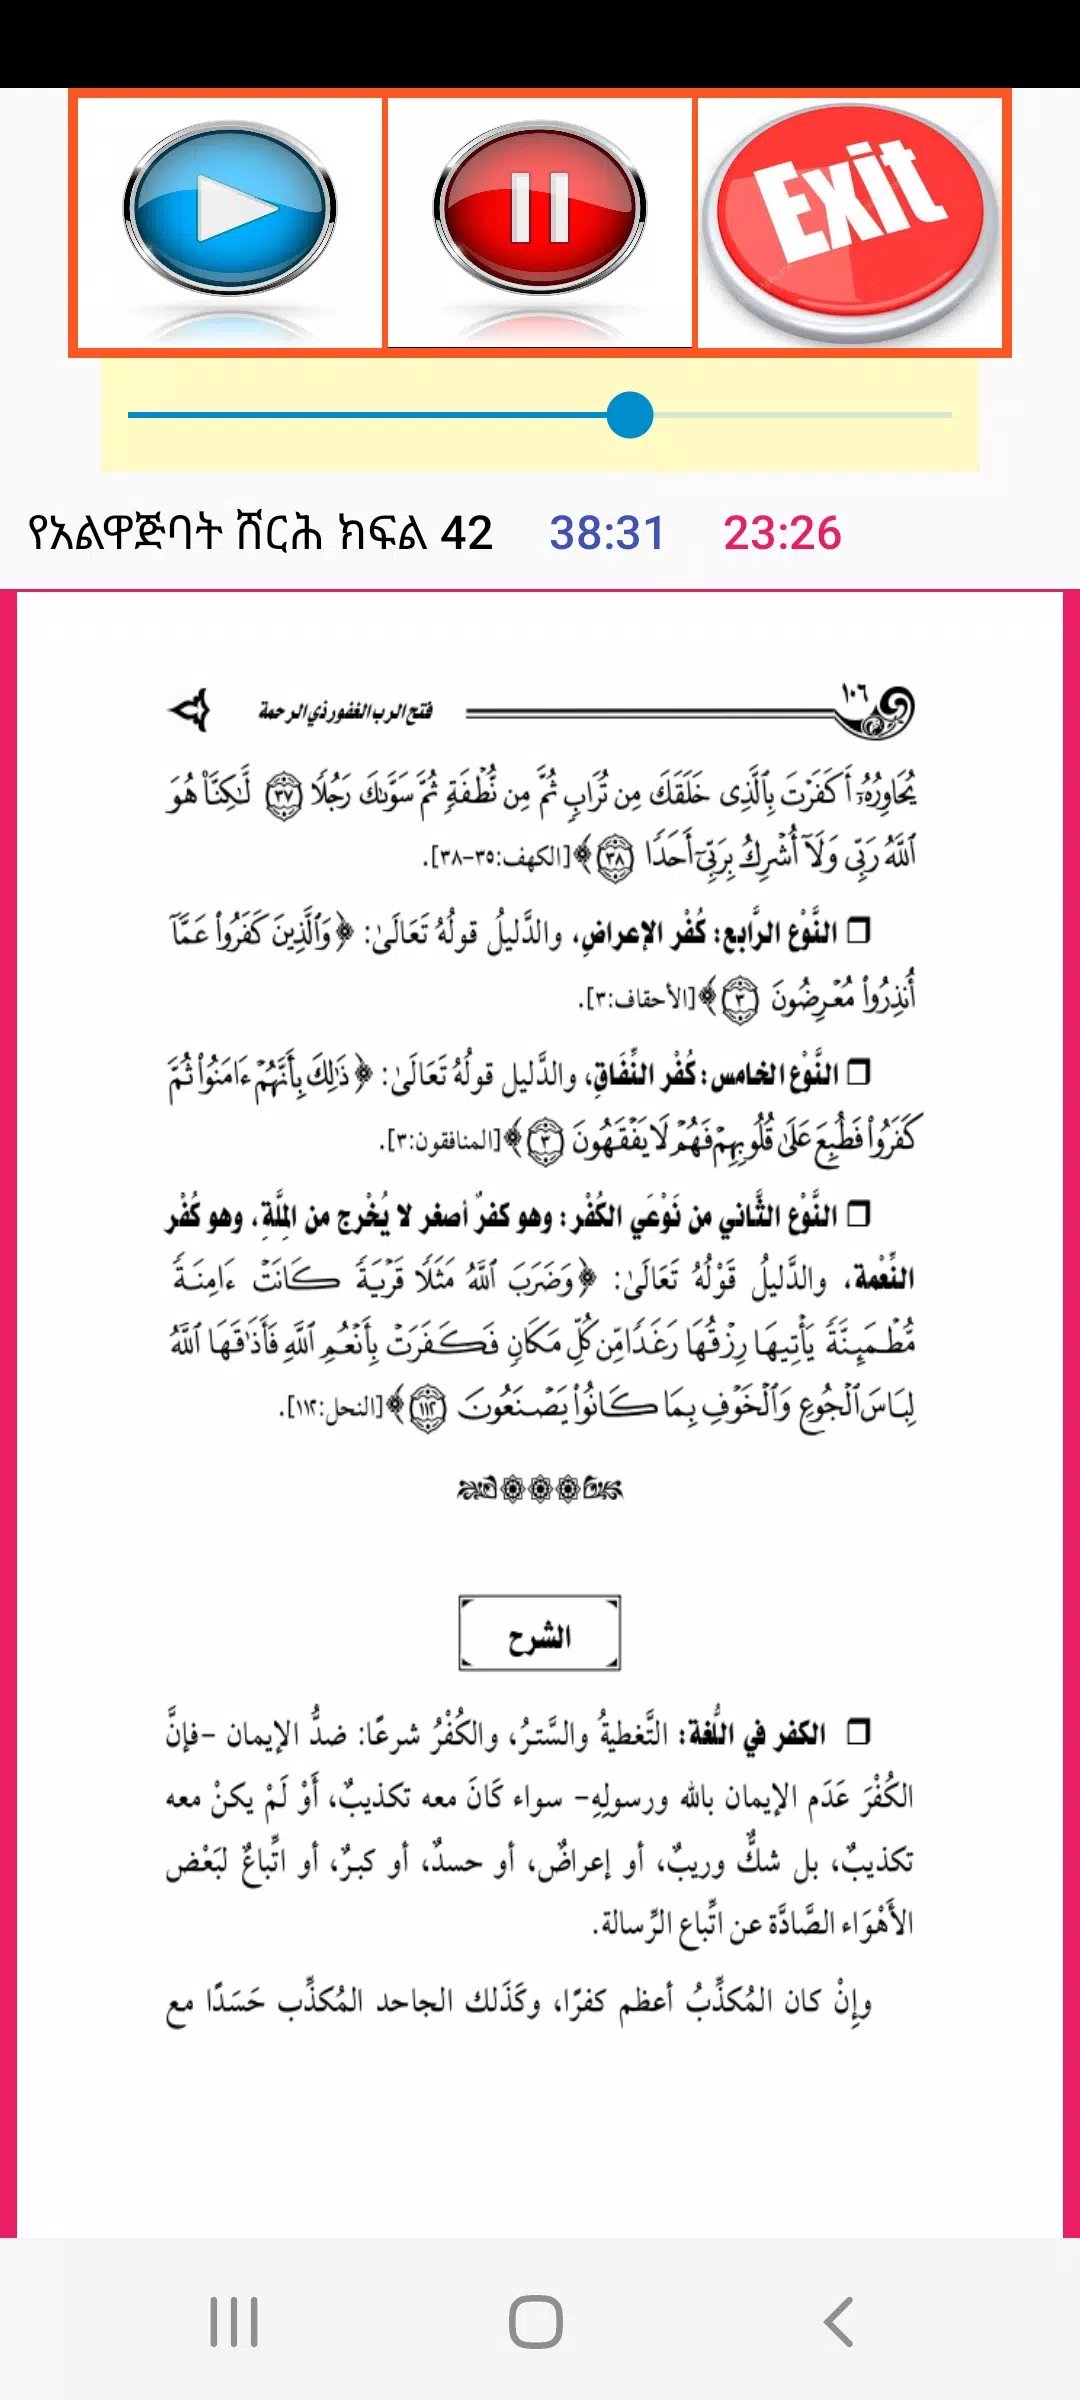 Exit
የአልዋጅባት ሸርሕ ክፍል 42 38:31 23:26
١٠٦ فتح الرب الغفور ذي الرحمة
يُحَاوِرُهُۥٓ أَكَفَرْتَ بِٱلَّذِى خَلَقَكَ مِن تُرَابٍ ثُمَّ مِن نُّطْفَةٍ ثُمَّ سَوَّىٰكَ رَجُلًا ٣٧ لَّٰكِنَّا۠ هُوَ
ٱللَّهُ رَبِّى وَلَآ أُشْرِكُ بِرَبِّىٓ أَحَدًا ٣٨ ﴾ [الكهف:٣٥-٣٨].
❒ النَّوْع الرَّابع: كُفْر الإعراضِ، والدَّليلُ قولُهُ تَعَالَىٰ: ﴿ وَٱلَّذِينَ كَفَرُوا۟ عَمَّآ
أُنذِرُوا۟ مُعْرِضُونَ ٣ ﴾ [الأحقاف:٣].
❒ النَّوْع الخامس: كُفْر النِّفَاقِ، والدَّليل قولُهُ تَعَالَىٰ: ﴿ ذَٰلِكَ بِأَنَّهُمْ ءَامَنُوا۟ ثُمَّ
كَفَرُوا۟ فَطُبِعَ عَلَىٰ قُلُوبِهِمْ فَهُمْ لَا يَفْقَهُونَ ٣ ﴾ [المنافقون:٣].
❒ النَّوْع الثَّاني من نَوْعَي الكُفْر: وهو كفرٌ أصغر لا يُخْرج من المِلَّةِ، وهو كُفْر
النِّعْمة، والدَّليلُ قَوْلُهُ تَعَالَىٰ: ﴿ وَضَرَبَ ٱللَّهُ مَثَلًا قَرْيَةً كَانَتْ ءَامِنَةً
مُّطْمَئِنَّةً يَأْتِيهَا رِزْقُهَا رَغَدًا مِّن كُلِّ مَكَانٍ فَكَفَرَتْ بِأَنْعُمِ ٱللَّهِ فَأَذَٰقَهَا ٱللَّهُ
لِبَاسَ ٱلْجُوعِ وَٱلْخَوْفِ بِمَا كَانُوا۟ يَصْنَعُونَ ١١٢ ﴾ [النحل:١١٢].
الشرح
❒ الكفر في اللُّغة: التَّغطيةُ والسَّترُ، والكُفْرُ شرعًا: ضدُّ الإيمان -فإنَّ
الكُفْرَ عَدَم الإيمان بالله ورسولِهِ- سواء كَانَ معه تكذيبٌ، أَوْ لَمْ يكنْ معه
تكذيبٌ، بل شكٌّ وريبٌ، أو إعراضٌ، أو حسدٌ، أو كبرٌ، أو اتِّباعٌ لبَعْض
الأَهْوَاء الصَّادَّة عن اتِّباع الرِّسالة.
وإِنْ كان المُكذِّبُ أعظم كفرًا، وكَذَلك الجاحد المُكذِّب حَسَدًا مع